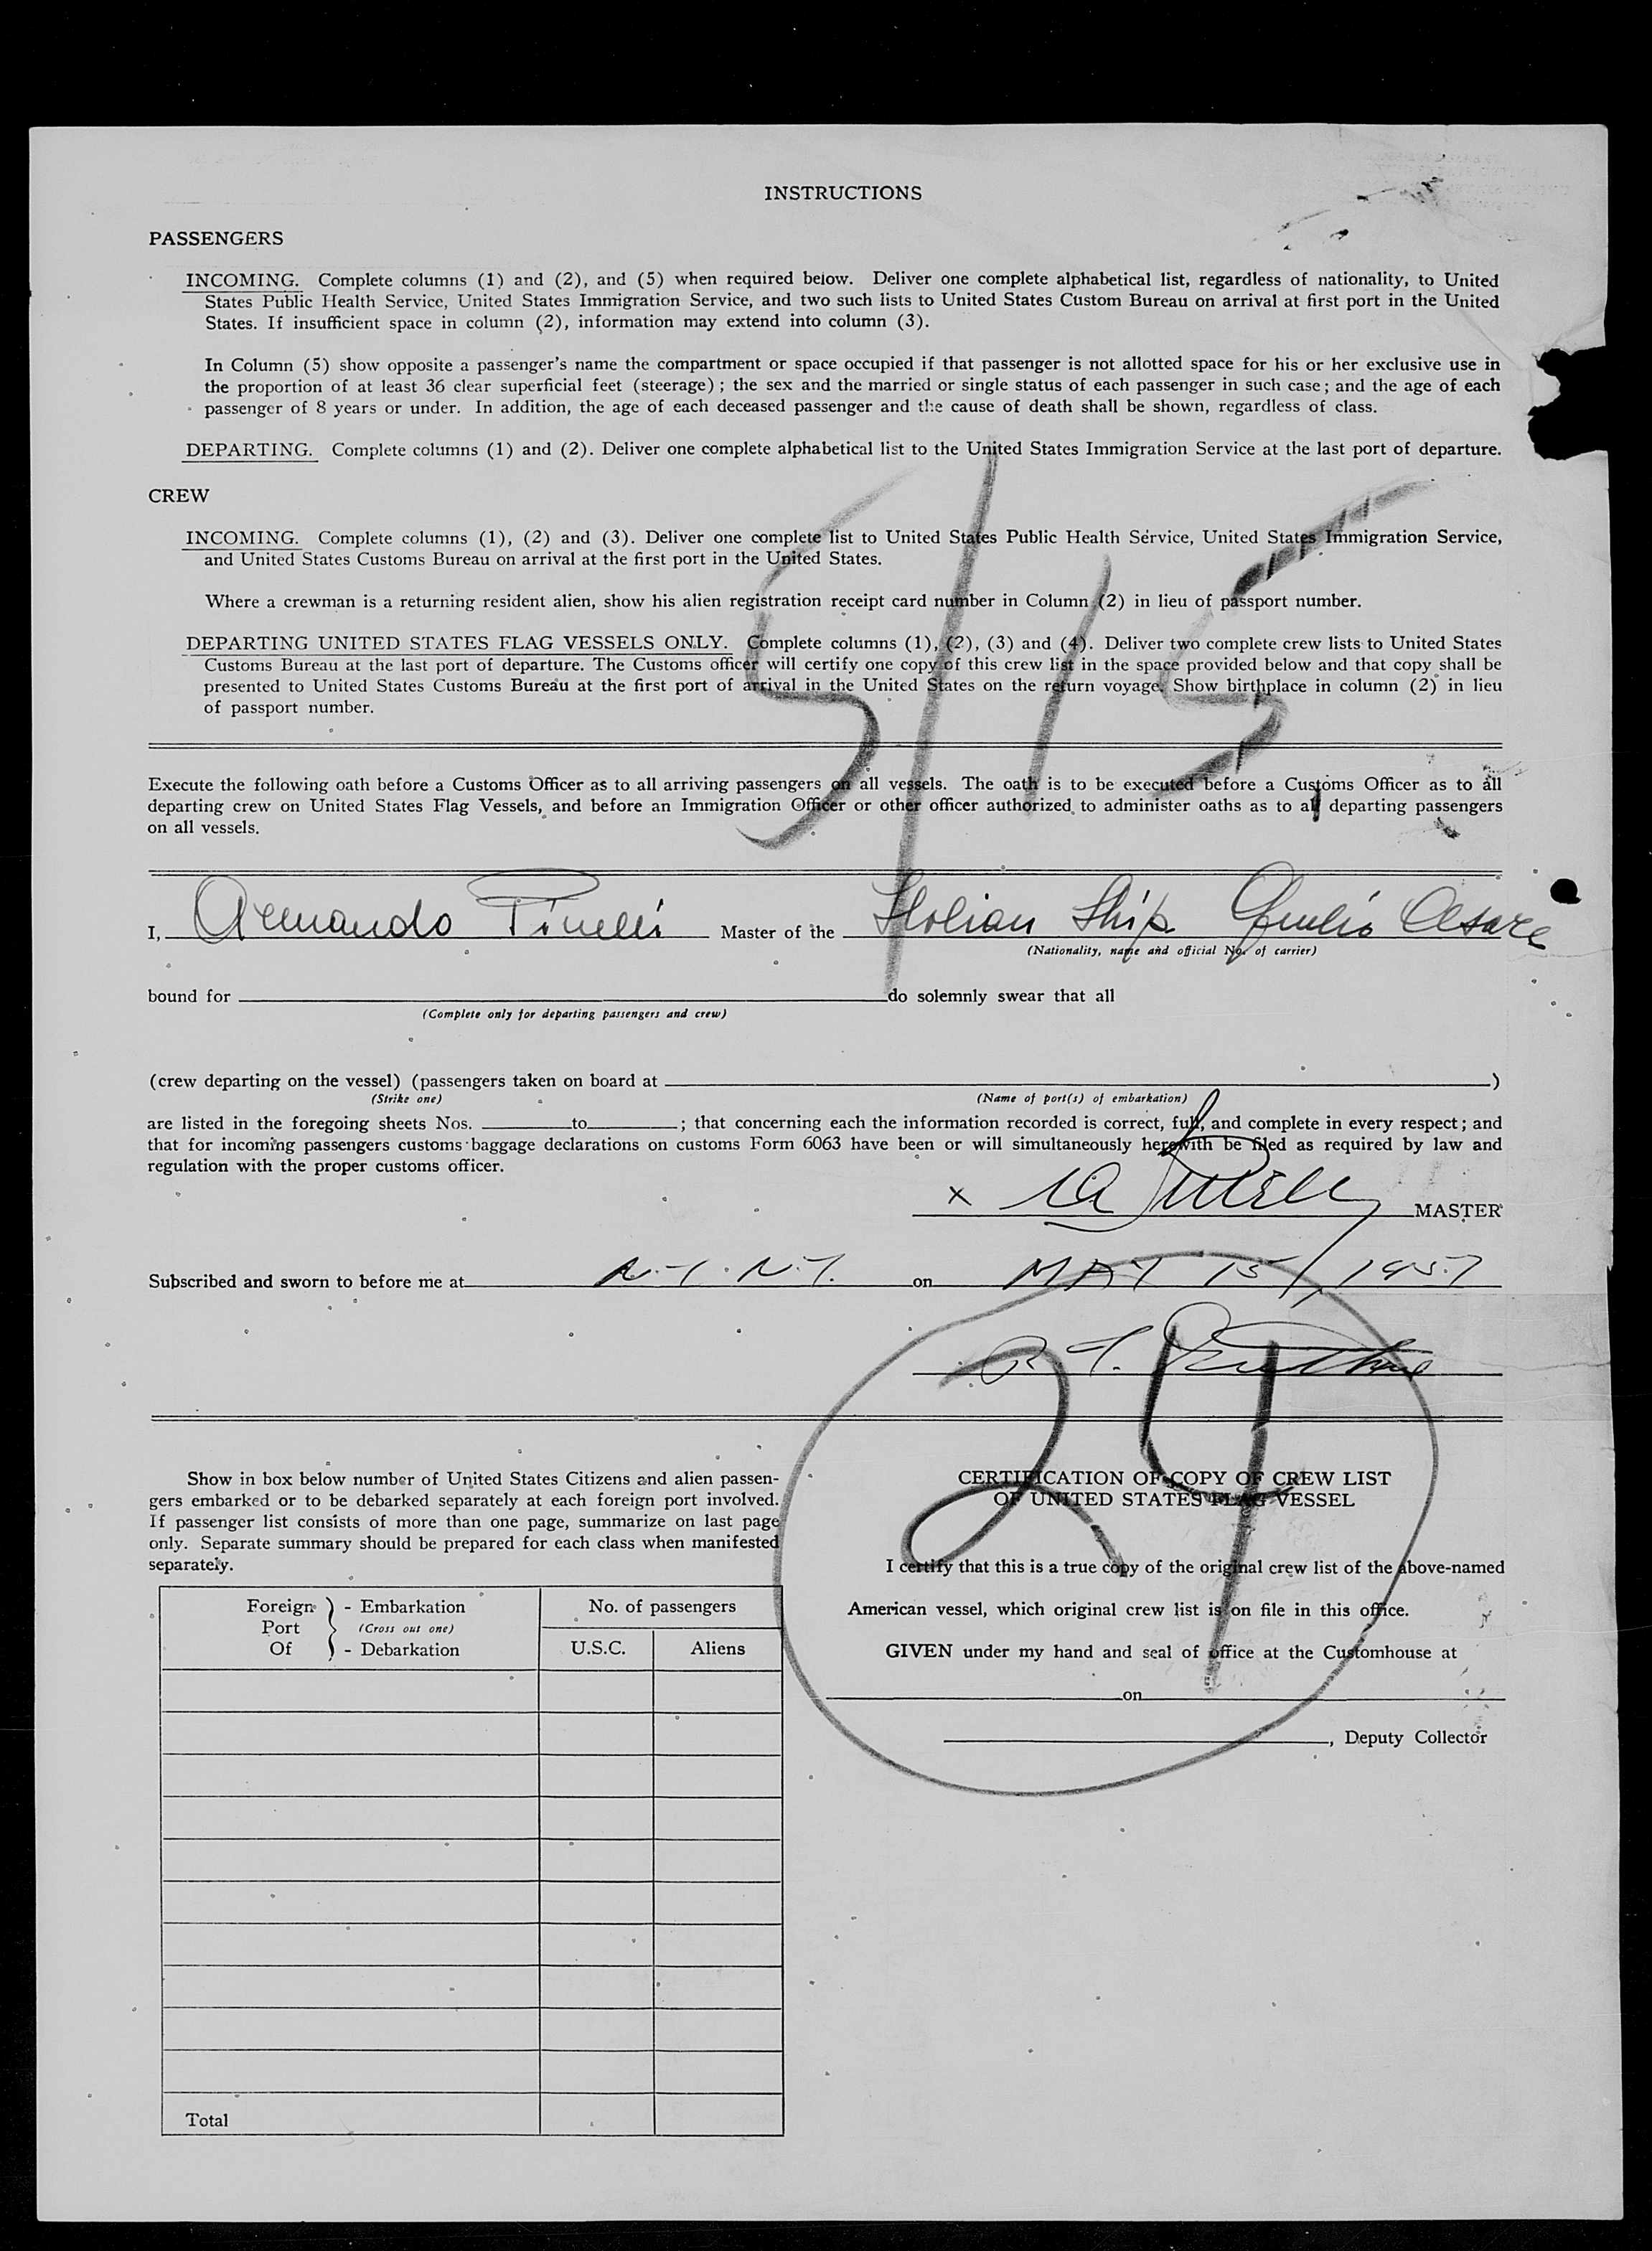 INSTRUCTIONS
PASSENGERS
INCOMING. Complete columns (1) and (2), and (5) when required below. Deliver one complete alphabetical list, regardless of nationality, to United
States Public Health Service, United States Immigration Service, and two such lists to United States Custom Bureau on arrival at first port in the United
States. If insufficient space in column (2), information may extend into column (3).
In Column (5) show opposite a passenger's name the compartment or space occupied if that passenger is not allotted space for his or her exclusive use in
the proportion of at least 36 clear superficial feet (steerage); the sex and the married or single status of each passenger in such case; and the age of each
passenger of 8 years or under. In addition, the age of each deceased passenger and the cause of death shall be shown, regardless of class.
DEPARTING. Complete columns (1) and (2). Deliver one complete alphabetical list to the United States Immigration Service at the last port of departure.
CREW
INCOMING. Complete columns (1), (2) and (3). Deliver one complete list to United States Public Health Service, United States Immigration Service,
and United States Customs Bureau on arrival at the first port in the United States.
Where a crewman is a returning resident alien, show his alien registration receipt card number in Column (2) in lieu of passport number.
DEPARTING UNITED STATES FLAG VESSELS ONLY. Complete columns (1), (2), (3) and (4). Deliver two complete crew lists to United States
Customs Bureau at the last port of departure. The Customs officer will certify one copy of this crew list in the space provided below and that copy shall be
presented to United States Customs Bureau at the first port of arrival in the United States on the return voyage. Show birthplace in column (2) in lieu
of passport number.
5/15
Execute the following oath before a Customs Officer as to all arriving passengers on all vessels. The oath is to be executed before a Customs Officer as to all
departing crew on United States Flag Vessels, and before an Immigration Officer or other officer authorized to administer oaths as to all departing passengers
on all vessels.
I, Armando Pinelli Master of the Italian Ship Giulio Cesare
(Nationality, name and official No. of carrier)
bound for do solemnly swear that all
(Complete only for departing passengers and crew)
(crew departing on the vessel) (passengers taken on board at )
(Strike one) (Name of port(s) of embarkation)
are listed in the foregoing sheets Nos. to ; that concerning each the information recorded is correct, full, and complete in every respect; and
that for incoming passengers customs baggage declarations on customs Form 6063 have been or will simultaneously herewith be filed as required by law and
regulation with the proper customs officer.
x A Pinelli MASTER
Subscribed and sworn to before me at N.Y. N.Y. on MAY 15, 1957
24
Show in box below number of United States Citizens and alien passen-
gers embarked or to be debarked separately at each foreign port involved.
If passenger list consists of more than one page, summarize on last page
only. Separate summary should be prepared for each class when manifested
separately.
Foreign Port Of - Embarkation (Cross out one) - Debarkation
No. of passengers
U.S.C. Aliens
Total
CERTIFICATION OF COPY OF CREW LIST
OF UNITED STATES FLAG VESSEL
I certify that this is a true copy of the original crew list of the above-named
American vessel, which original crew list is on file in this office.
GIVEN under my hand and seal of office at the Customhouse at
on
, Deputy Collector